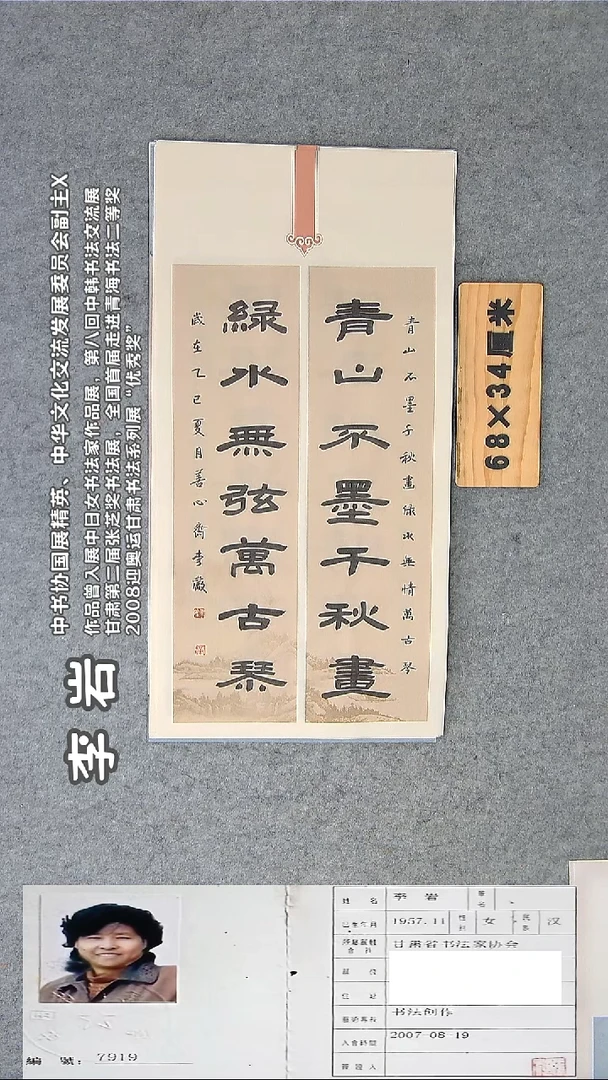 中书协国展精英、中华文化交流发展委员会副主X
作品曾入展中日女书法家作品展，第八回中韩书法交流展
甘肃第二届张芝奖书法展，全国首届走进青海书法二等奖
2008迎奥运甘肃书法系列展“优秀奖”
李岩
68×34厘米
青山石墨千秋画绿水无情万古琴
青山不墨千秋畫
綠水無弦萬古琴
歲在乙巳夏月善心齋李巖
姓名 李岩
1957.11 性别 女 民族 汉
甘肃省书法家协会
书法创作
入會時間 2007-08-19
簽證人
編號：7919